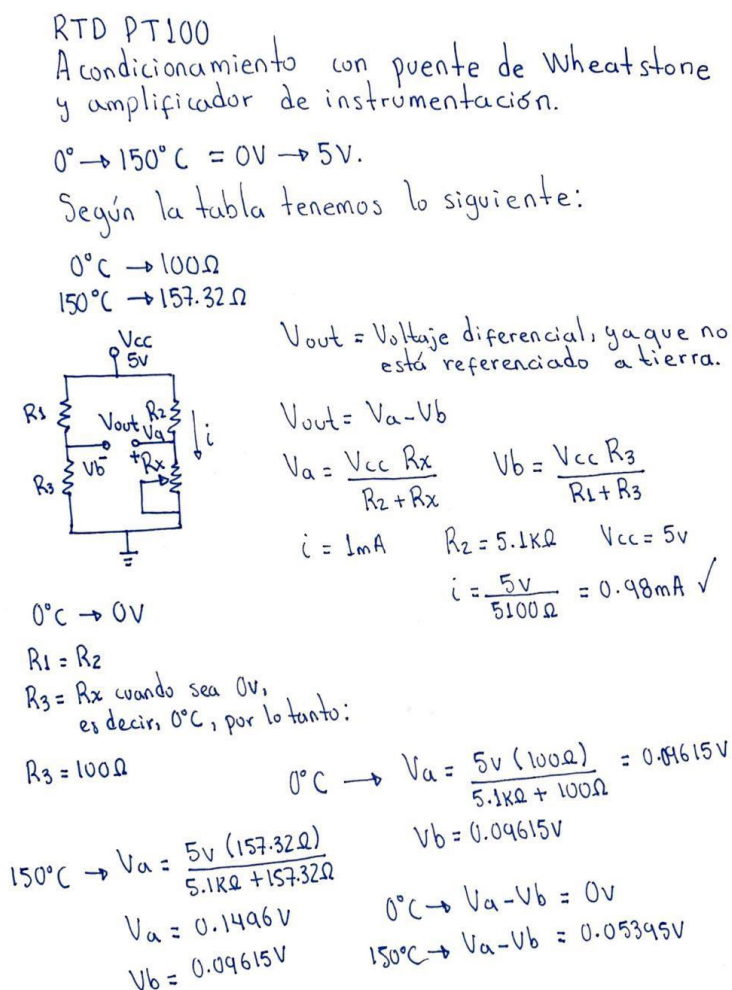 RTD PT100
Acondicionamiento con puente de Wheatstone
y amplificador de instrumentación.
0° → 150°C = 0V → 5V.
Según la tabla tenemos lo siguiente:
0°C → 100Ω
150°C → 157.32Ω
Vcc
5V
R1
Vout
R2
Va
i
Vb
-
+
Rx
R3
Vout = Voltaje diferencial, ya que no
está referenciado a tierra.
Vout = Va - Vb
Va = Vcc Rx / R2 + Rx
Vb = Vcc R3 / R1 + R3
i = 1mA R2 = 5.1KΩ Vcc = 5v
i = 5v / 5100Ω = 0.98mA ✓
0°C → 0V
R1 = R2
R3 = Rx cuando sea 0v,
es decir, 0°C, por lo tanto:
R3 = 100Ω
0°C → Va = 5v (100Ω) / 5.1KΩ + 100Ω = 0.09615V
Vb = 0.09615V
150°C → Va = 5v (157.32Ω) / 5.1KΩ + 157.32Ω
Va = 0.1496V
Vb = 0.09615V
0°C → Va - Vb = 0v
150°C → Va - Vb = 0.05345V